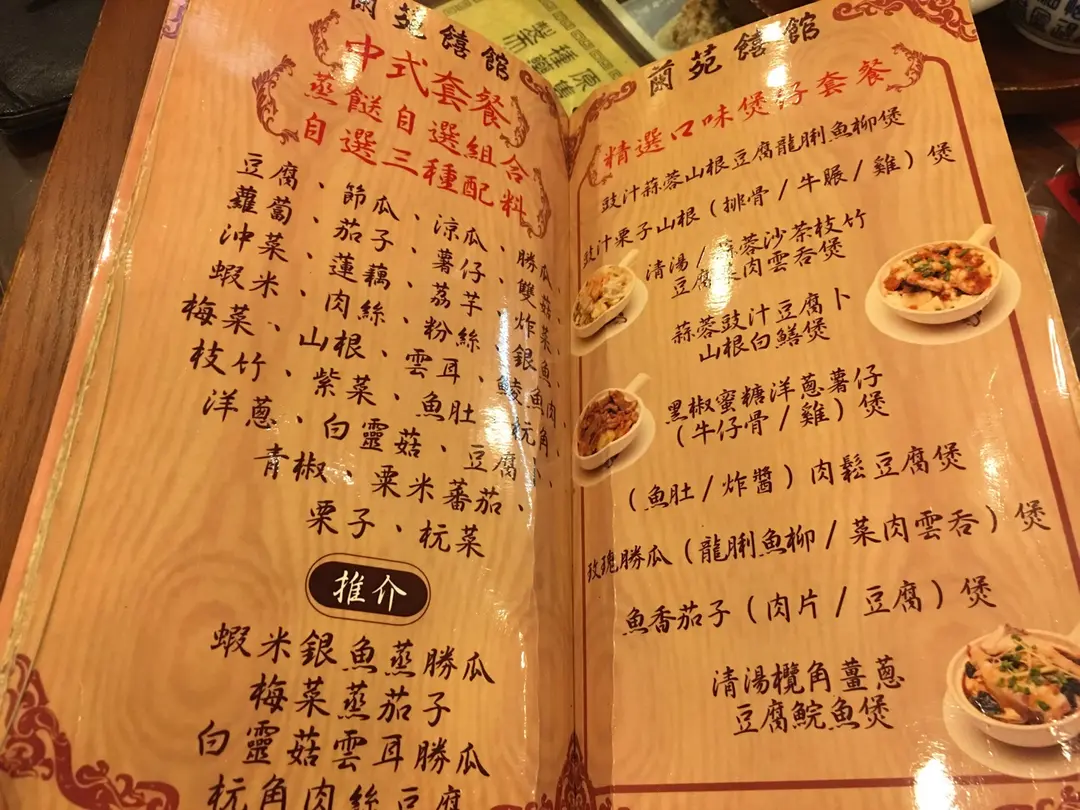 蘭苑饎館
中式套餐
蒸餸自選組合
自選三種配料
豆腐、節瓜、涼瓜、勝瓜、
蘿蔔、茄子、薯仔、雙菇、
沖菜、蓮藕、荔芋、炸菜、
蝦米、肉絲、粉絲、銀魚、
梅菜、山根、雲耳、鯪魚肉、
枝竹、紫菜、魚肚、杬角、
洋蔥、白靈菇、豆腐
青椒、粟米蕃茄、
栗子、杬菜
推介
蝦米銀魚蒸勝瓜
梅菜蒸茄子
白靈菇雲耳勝瓜
杬角肉絲豆腐
蘭苑饎館
精選口味煲仔套餐
豉汁蒜蓉山根豆腐龍脷魚柳煲
豉汁栗子山根（排骨/牛𦟌/雞）煲
清湯/蒜蓉沙茶枝竹
豆腐菜肉雲吞煲
蒜蓉豉汁豆腐卜
山根白鱔煲
黑椒蜜糖洋蔥薯仔
（牛仔骨/雞）煲
（魚肚/炸醬）肉鬆豆腐煲
玫瑰勝瓜（龍脷魚柳/菜肉雲吞）煲
魚香茄子（肉片/豆腐）煲
清湯欖角薑蔥
豆腐鯇魚煲